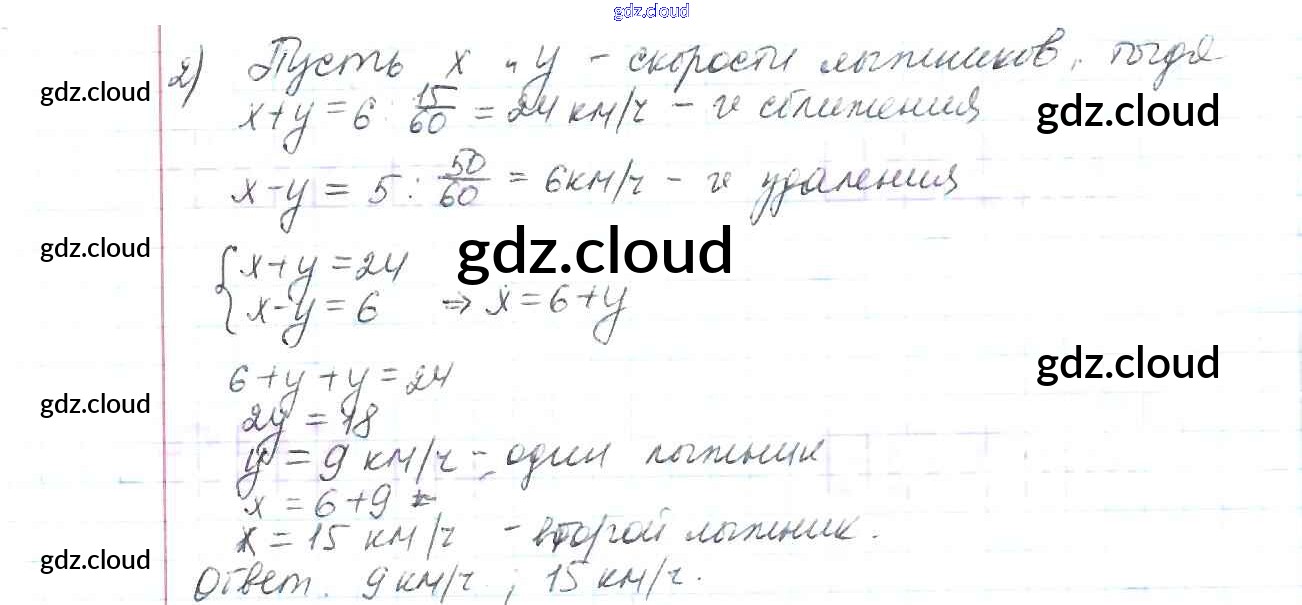 gdz.cloud
2) Пусть x и y - скорости лыжников, тогда
gdz.cloud
x+y = 6 : 15/60 = 24 км/ч - v сближения
gdz.cloud
x-y = 5 : 50/60 = 6 км/ч - v удаления
gdz.cloud
gdz.cloud
{ x+y = 24
x-y = 6 => x = 6+y
gdz.cloud
6+y+y = 24
gdz.cloud
2y = 18
y = 9 км/ч - один лыжник
x = 6+9
x = 15 км/ч - второй лыжник.
gdz.cloud
Ответ. 9 км/ч ; 15 км/ч.